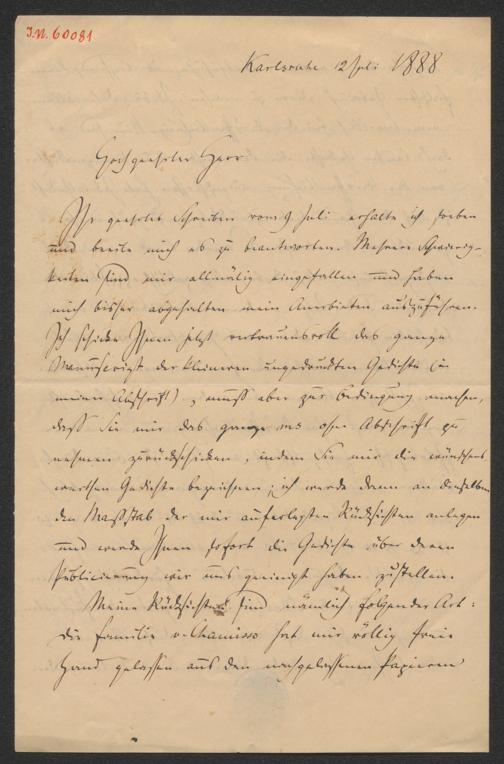 J.N. 60081
Karlsruhe 12 Juli 1888
Hochgeehrter Herr
Ihr geehrtes Schreiben vom 9 Juli erhalte ich soeben
und beeile mich es zu beantworten. Mehrere Schwierig-
keiten sind mir allmälig eingefallen und haben
mich bisher abgehalten mein Anerbieten auszuführen.
Ich schicke Ihnen jetzt vertrauensvoll das ganze
Manuscript der kleineren ungedruckten Gedichte (in
meiner Abschrift), muß aber zur Bedingung machen,
daß Sie mir das ganze ms ohne Abschrift zu
nehmen zurückschicken, indem Sie mir die wünschens
werthen Gedichte bezeichnen; ich werde dann an dieselben
den Maßstab der mir auferlegten Rücksichten anlegen
und werde Ihnen sofort die Gedichte über deren
Publicierung wir uns geeinigt haben zustellen.
Meine Rücksichten sind nämlich folgender Art:
die Familie v. Chamisso hat mir völlig freie
Hand gelassen aus den nachgelassenen Papieren